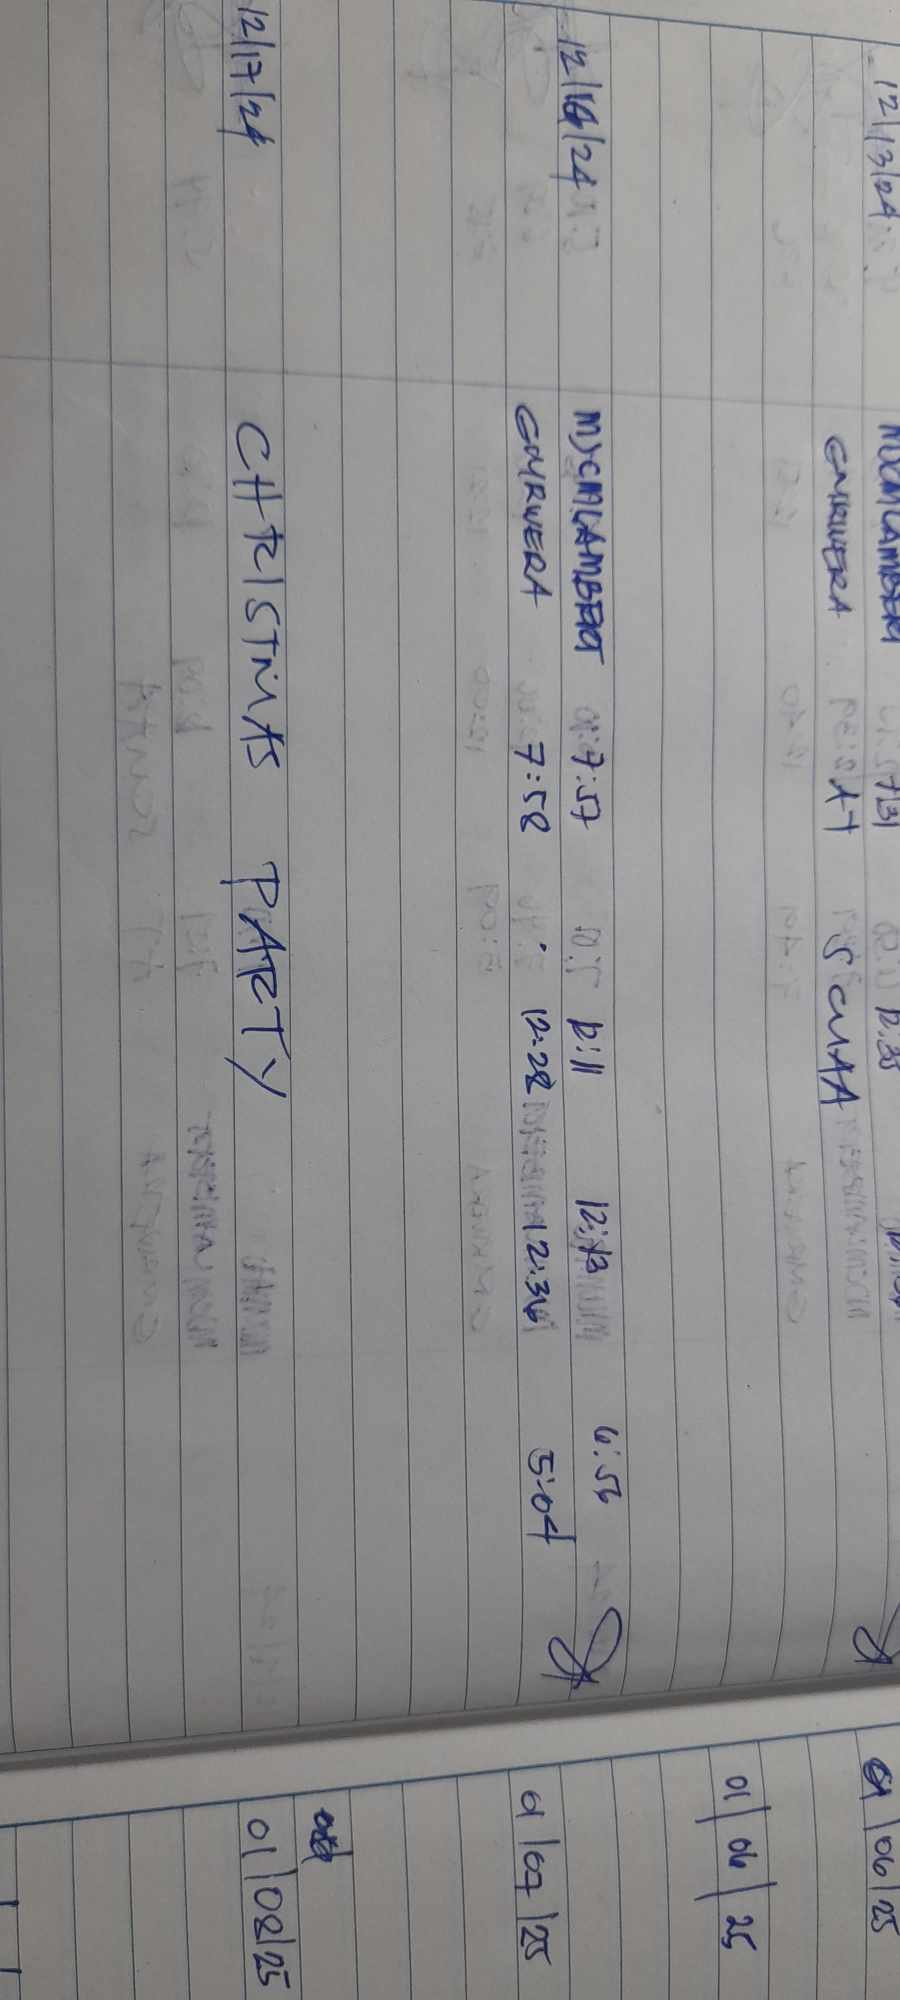 12/13/24
MXCMLAMBERT 7:31 12:35
GMRWERA
12/16/24 MXCMLAMBERT 7:57 12:11 12:13 6:56
GMRWERA 7:58 12:28 12:36 5:04
12/17/24 CHRISTMAS PARTY
01/06/25
01/06/25
01/07/25
01/08/25